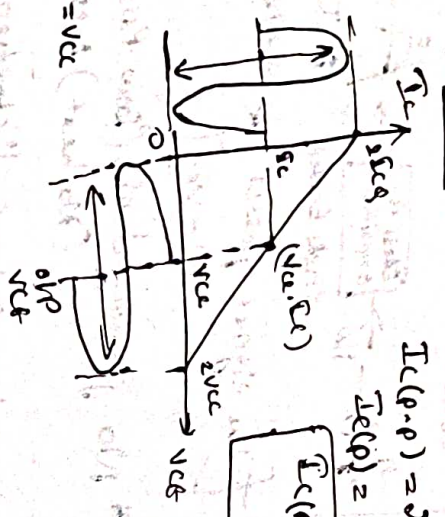 Ic
2Icq
Ic
0
(Vcc, Ic)
Vcc
2Vcc
VCE
o/p
VCE
= Vcc
Ic(p-p) =
Ic(p) =
Ic(